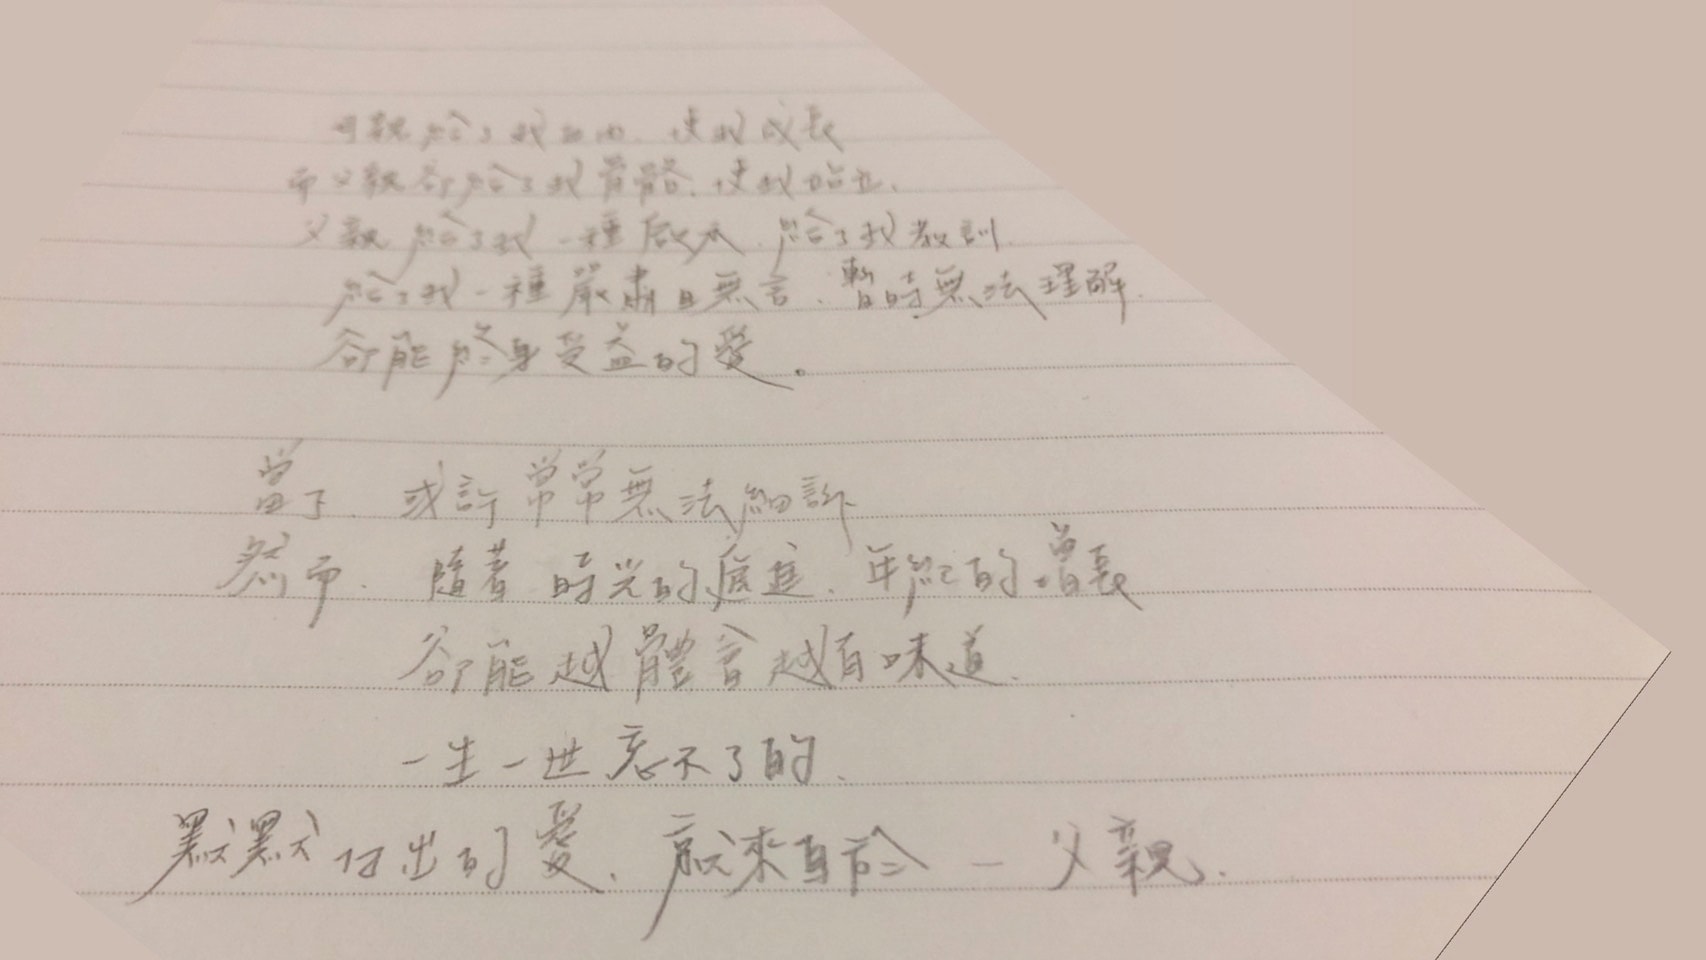 母親給了我血肉，使我成長
而父親卻給了我骨骼，使我站立，
父親給了我一種啟示，給了我教訓
給了我一種嚴肅且無言，暫時無法理解，
卻能終身受益的愛。
當下，或許常常無法細訴
然而，隨著時光的遞進，年紀的增長
卻能越體會越有味道，
一生一世忘不了的，
默默付出的愛，就來自於一父親，